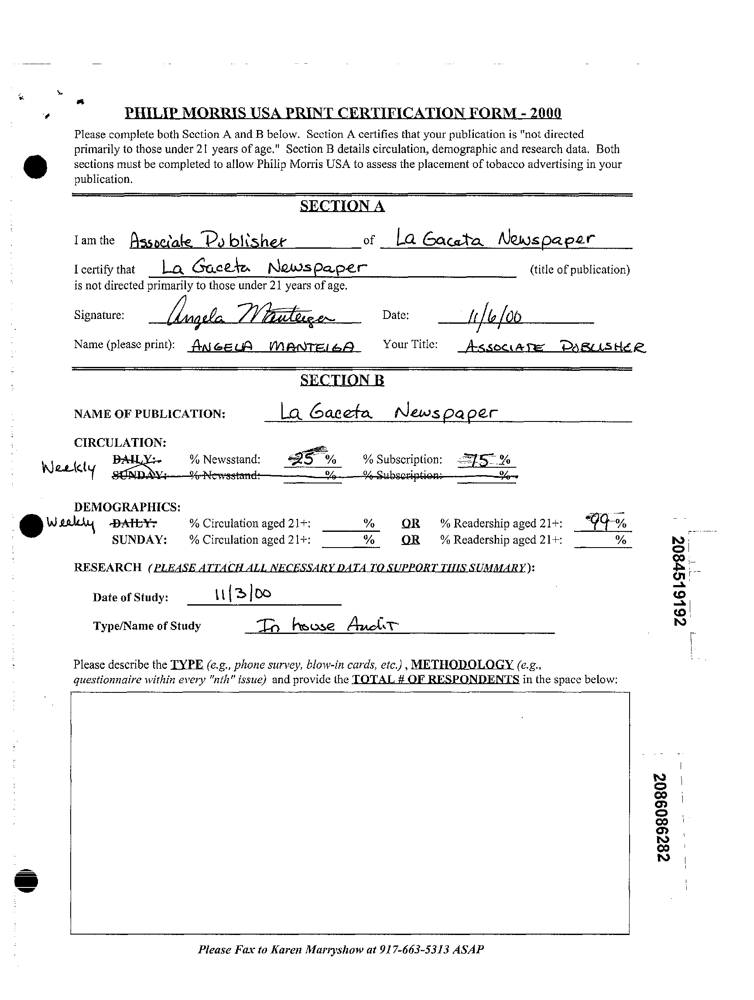 PHILIP MORRIS USA PRINT CERTIFICATION FORM - 2000
Please complete both Section A and B below. Section A certifies that your publication is "not directed
primarily to those under 21 years of age." Section B details circulation, demographic and research data. Both
sections must be completed to allow Philip Morris USA to assess the placement of tobacco advertising in your
publication.
SECTION A
I am the Associate Publisher of La Gaceta Newspaper
I certify that La Gaceta Newspaper (title of publication)
is not directed primarily to those under 21 years of age.
Signature: Angela Manteiga Date: 11/6/00
Name (please print): ANGELA MANTEIGA Your Title: ASSOCIATE PUBLISHER
SECTION B
NAME OF PUBLICATION: La Gaceta Newspaper
CIRCULATION:
Weekly DAILY: % Newsstand: 25 % % Subscription: 75 %
SUNDAY: % Newsstand: % % Subscription: %
DEMOGRAPHICS:
Weekly DAILY: % Circulation aged 21+: % OR % Readership aged 21+: 99 %
SUNDAY: % Circulation aged 21+: % OR % Readership aged 21+: %
RESEARCH (PLEASE ATTACH ALL NECESSARY DATA TO SUPPORT THIS SUMMARY):
Date of Study: 11/3/00
Type/Name of Study In house Audit
Please describe the TYPE (e.g., phone survey, blow-in cards, etc.) , METHODOLOGY (e.g.,
questionnaire within every "nth" issue) and provide the TOTAL # OF RESPONDENTS in the space below:
Please Fax to Karen Marryshow at 917-663-5313 ASAP
2084519192
2086086282